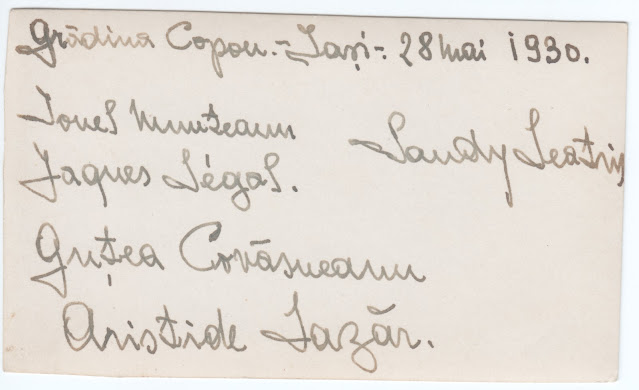 Grădina Copou.-Iași-. 28 mai 1930.
Ionel Munteanu
Sandy
Jaques Ségal.
Guțea Covăsneanu
Aristide Lazăr.